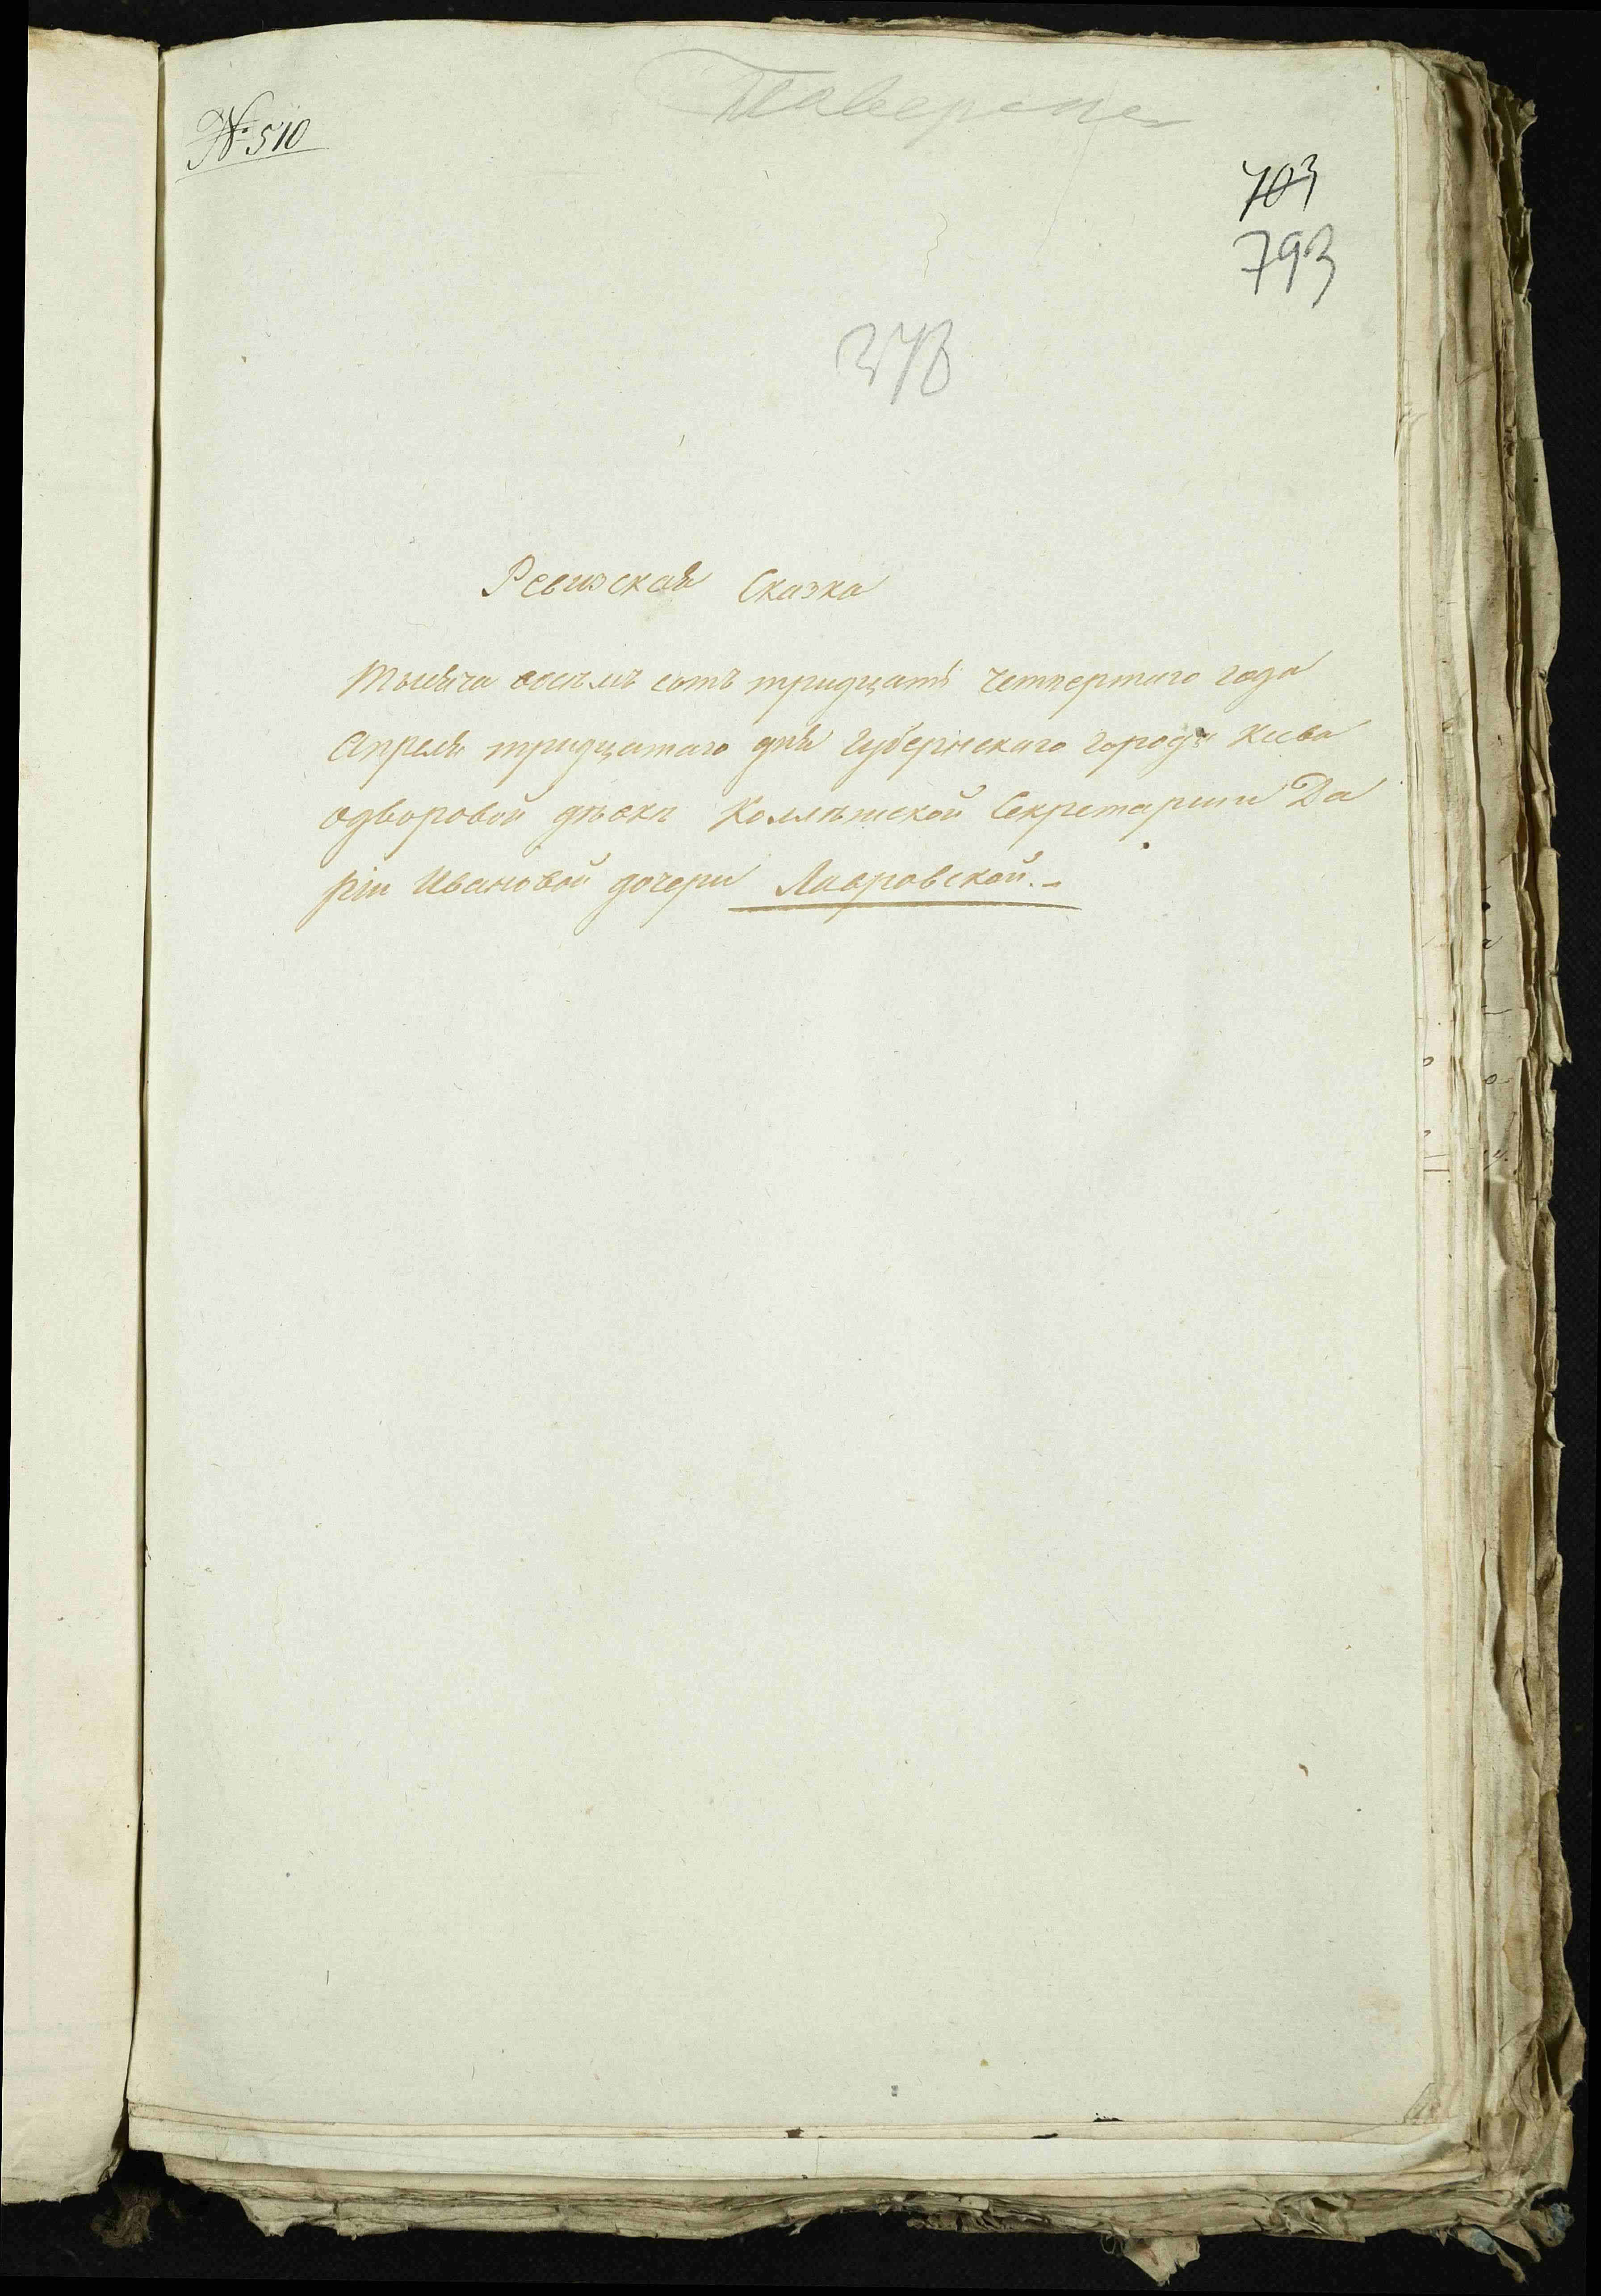 № 510
703
793
373
Ревизская Сказка
Тысяча восемь сотъ тридцать четвертаго года
Апреля тридцатаго дня Губернскаго города Киева
одворовой Коллежской Секретарши Да
ріи Ивановой дочери Лавровской.-